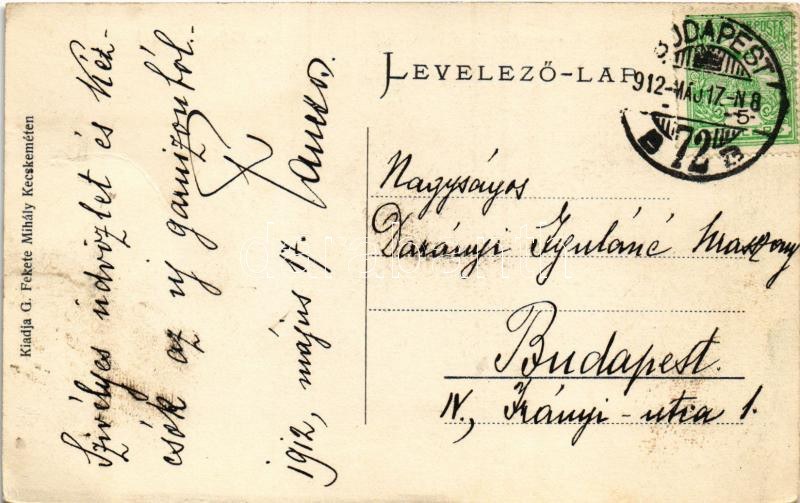 Kiadja G. Fekete Mihály Kecskeméten
Szívélyes üdvözlet és kéz-
csók az uj garnizonból.-
1912, május 17.
LEVELEZŐ-LAP
BUDAPEST
912-MÁJ 17-N8
-5-
72
POSTA
Nagyságos
Darányi Gyuláné
Budapest.
IV., Irányi-utca 1.